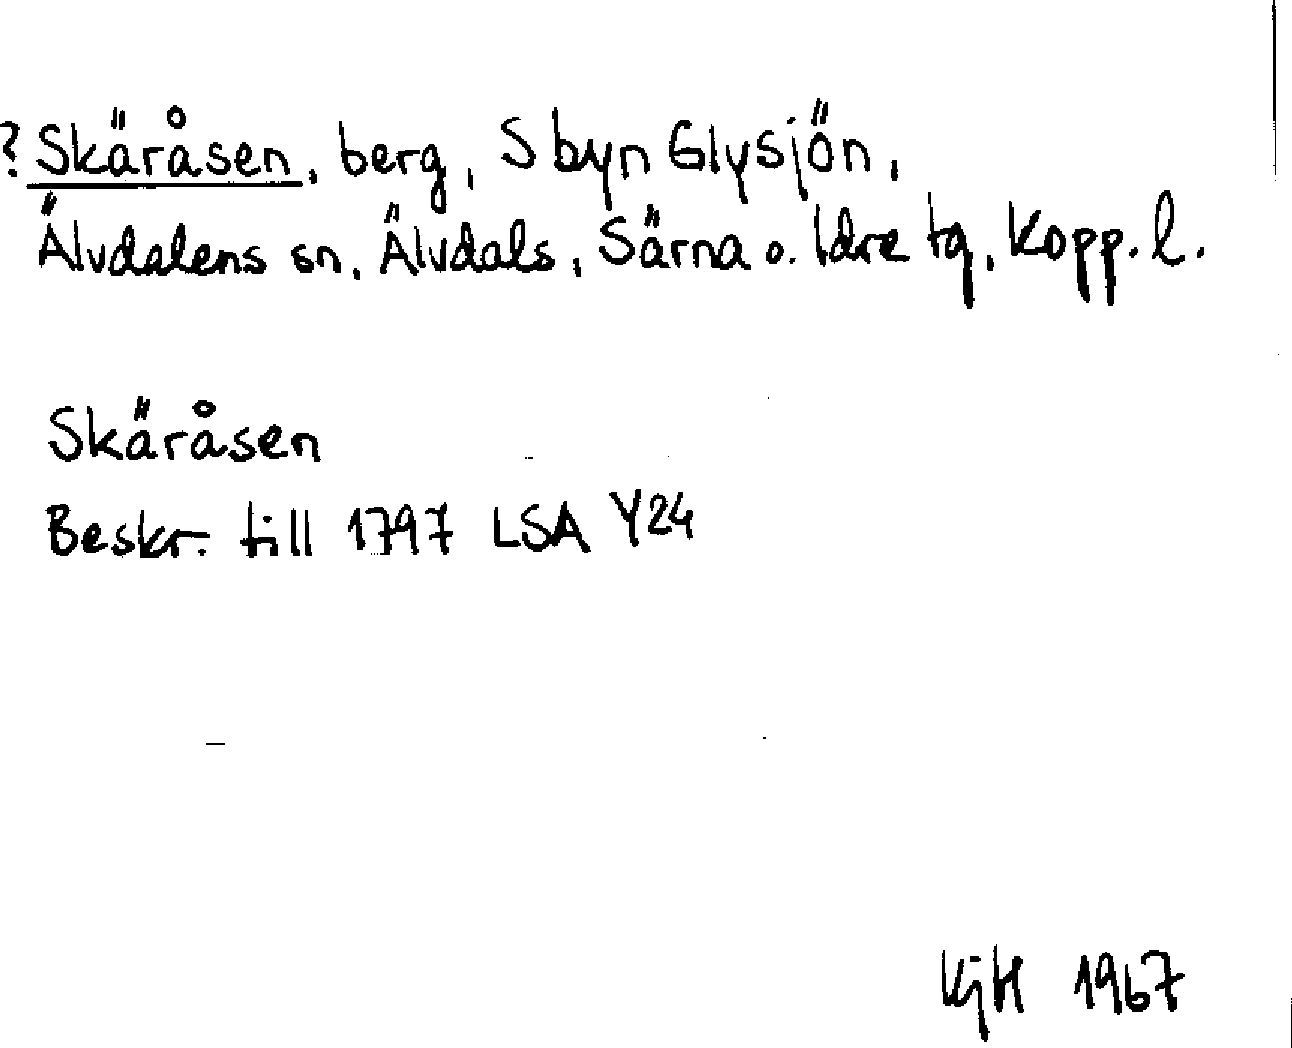 ? Skäråsen, berg, S byn Glysjön,
Älvdalens sn, Älvdals, Särna o. Idre tg, Kopp. l.
Skäråsen
Beskr. till 1797 LSA Y24
KjH 1967